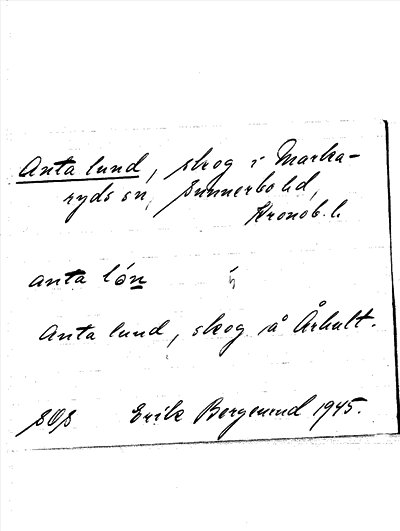 Anta lund, skog i Marka-
ryds sn, Sunnerbo hd,
Kronob. l.
anta lón
Anta lund, skog å Århult.
SOS Erik Bergenund 1945.